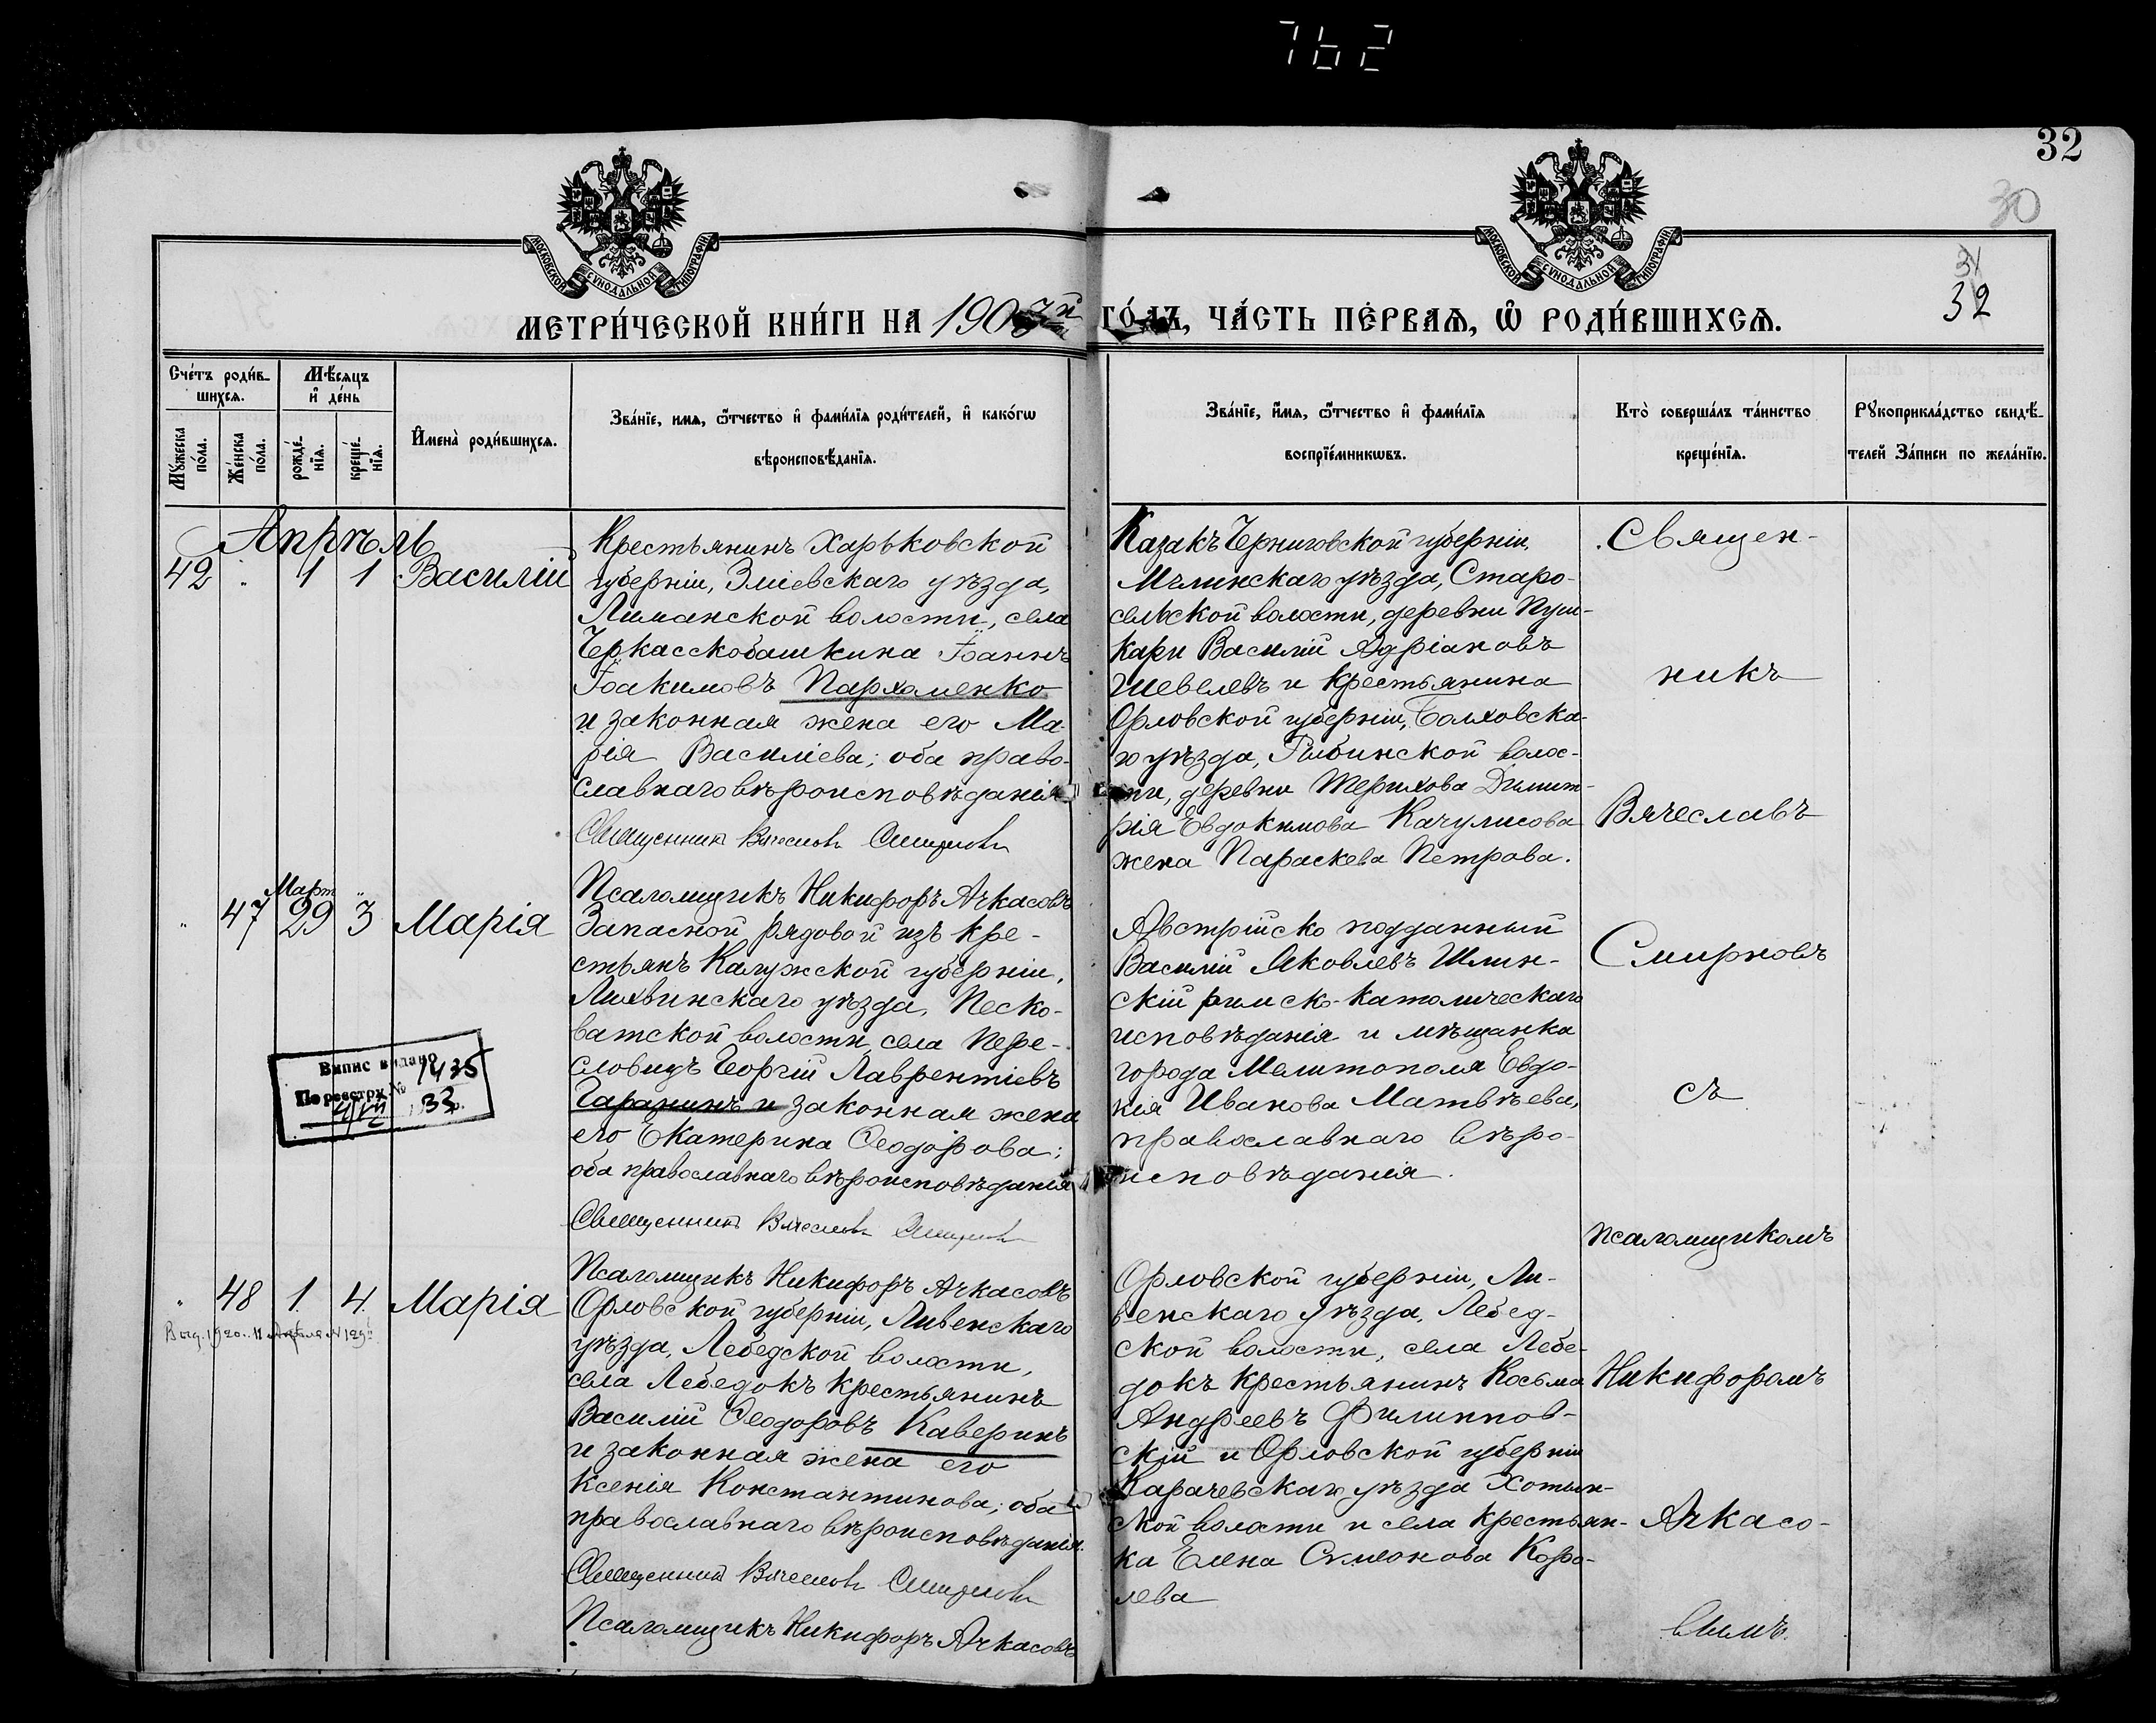 762
32
30
31
32
МОСКОВСКОЙ СѴНОДАЛЬНОЙ ТИПОГРАФІИ
МОСКОВСКОЙ СѴНОДАЛЬНОЙ ТИПОГРАФІИ
МЕТРИ́ЧЕСКОЙ КНИ́ГИ НА 1907й ГО́ДЪ, ЧА́СТЬ ПЕ́РВАѦ, Ѡ РОДИ́ВШИХСѦ.
Сче́тъ роди́в-
шихсѧ.
Мѣ́сѧцъ
и҆ де́нь
Мꙋ́жеска
по́ла.
Же́нска
по́ла.
рожде́-
нїѧ.
креще́-
нїѧ.
И҆мена̀ роди́вшихсѧ.
Зва́нїе, имѧ, ѿ́тчество и҆ фами́лїѧ роди́телей, и҆ како́гѡ
вѣроисповѣ́данїѧ.
Зва́нїе, и҆́мѧ, ѿ́тчество и҆ фами́лїѧ
воспрїе́мникѡвъ.
Кто̀ соверша́лъ та́инство
креще́нїѧ.
Рꙋкоприкла́дство свидѣ́-
телей За́писи по жела́нїю.
Апрѣль
42 " 1 1 Василій
Крестьянинъ Харьковской
губерніи, Зміевскаго уѣзда,
Лиманской волости, села
Черкасскобашкина Іоаннъ
Іоакимовъ Пархоменко
и законная жена его Ма-
рія Василіева; оба право-
славнаго вѣроисповѣданія.
Священникъ Вячеславъ Смирновъ
Псаломщикъ Никифоръ Ачкасовъ
Казакъ Черниговской губерніи,
Мглинскаго уѣзда, Старо-
сельской волости, деревни Пуш-
кари Василій Адріановъ
Шевелевъ и крестьянина
Орловской губерніи, Болховска-
го уѣзда, волос-
ти, деревни Терихова Димит-
рія Евдокимова
жена Параскева Петрова.
Март
" 47 29 3 Марія
Запасной рядовой изъ кре-
стьянъ Калужской губерніи,
Лихвинскаго уѣзда, Песко-
ватской волости, села Пере-
словичъ Георгій Лаврентіевъ
Гаранинъ и законная жена
его Екатерина Ѳеодорова;
оба православнаго вѣроисповѣданія
Священникъ Вячеславъ Смирновъ
Псаломщикъ Никифоръ Ачкасовъ
Випис видано
По реестру № 1435
4/VII 33.
Австрійско подданный
Василій Яковлевъ Шлин-
скій римско-католическаго
исповѣданія и мѣщанка
города Мелитополя Евдо-
кія Иванова Матвѣева,
православнаго вѣро-
исповѣданія.
" 48 1. 4. Марія
Выд. 1920. 11 Апрѣля № 129
Орловской губерніи, Ливенскаго
уѣзда, Лебедской волости,
села Лебедокъ крестьянинъ
Василій Ѳеодоровъ Каверинъ
и законная жена его
Ксенія Константинова; оба
православнаго вѣроисповѣданія.
Священникъ Вячеславъ Смирновъ
Псаломщикъ Никифоръ Ачкасовъ
Орловской губерніи, Ли-
венскаго уѣзда, Лебед-
ской волости, села Лебе-
докъ крестьянинъ Косьма
Андреевъ Филиппов-
скій и Орловской губерніи
Карачевскаго уѣзда Хотын-
ской волости и села крестьян-
ка Елена Симеонова Коро-
лева
Священ-
никъ
Вячеславъ
Смирновъ
съ
псаломщикомъ
Никифоромъ
Ачкасо-
вымъ.